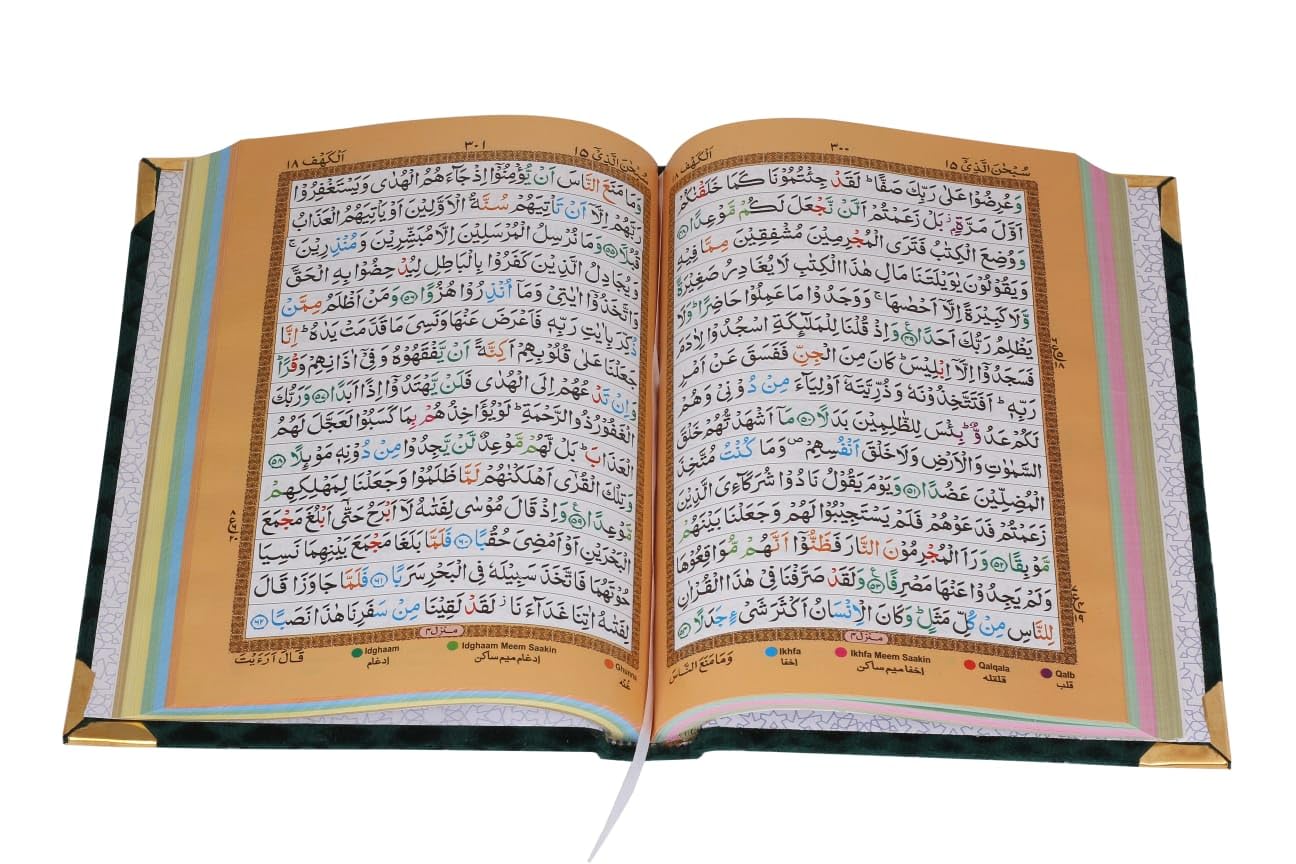 سُبْحٰنَ الَّذِیْۤ ۱۵
۳۰۰
اَلْكَهْف ۱۸
وَعُرِضُوْا عَلٰی رَبِّكَ صَفًّا ؕ لَقَدْ جِئْتُمُوْنَا كَمَا خَلَقْنٰكُمْ
اَوَّلَ مَرَّةٍۭ ؗ بَلْ زَعَمْتُمْ اَلَّنْ نَّجْعَلَ لَكُمْ مَّوْعِدًا ﴿۴۸﴾
وَوُضِعَ الْكِتٰبُ فَتَرَی الْمُجْرِمِیْنَ مُشْفِقِیْنَ مِمَّا فِیْهِ
وَیَقُوْلُوْنَ یٰوَیْلَتَنَا مَالِ هٰذَا الْكِتٰبِ لَا یُغَادِرُ صَغِیْرَةً
وَّلَا كَبِیْرَةً اِلَّاۤ اَحْصٰىهَا ۚ وَوَجَدُوْا مَا عَمِلُوْا حَاضِرًا ؕ وَلَا
یَظْلِمُ رَبُّكَ اَحَدًا ﴿۴۹﴾ وَاِذْ قُلْنَا لِلْمَلٰٓىِٕكَةِ اسْجُدُوْا لِاٰدَمَ
فَسَجَدُوْۤا اِلَّاۤ اِبْلِیْسَ ؕ كَانَ مِنَ الْجِنِّ فَفَسَقَ عَنْ اَمْرِ
رَبِّهٖ ؕ اَفَتَتَّخِذُوْنَهٗ وَذُرِّیَّتَهٗۤ اَوْلِیَآءَ مِنْ دُوْنِیْ وَهُمْ
لَكُمْ عَدُوٌّ ؕ بِئْسَ لِلظّٰلِمِیْنَ بَدَلًا ﴿۵۰﴾ مَاۤ اَشْهَدْتُّهُمْ خَلْقَ
السَّمٰوٰتِ وَالْاَرْضِ وَلَا خَلْقَ اَنْفُسِهِمْ ۪ وَمَا كُنْتُ مُتَّخِذَ
الْمُضِلِّیْنَ عَضُدًا ﴿۵۱﴾ وَیَوْمَ یَقُوْلُ نَادُوْا شُرَكَآءِیَ الَّذِیْنَ
زَعَمْتُمْ فَدَعَوْهُمْ فَلَمْ یَسْتَجِیْبُوْا لَهُمْ وَجَعَلْنَا بَیْنَهُمْ
مَّوْبِقًا ﴿۵۲﴾ وَرَاَ الْمُجْرِمُوْنَ النَّارَ فَظَنُّوْۤا اَنَّهُمْ مُّوَاقِعُوْهَا
وَلَمْ یَجِدُوْا عَنْهَا مَصْرِفًا ﴿۵۳﴾ وَلَقَدْ صَرَّفْنَا فِیْ هٰذَا الْقُرْاٰنِ
لِلنَّاسِ مِنْ كُلِّ مَثَلٍ ؕ وَكَانَ الْاِنْسَانُ اَكْثَرَ شَیْءٍ جَدَلًا ﴿۵۴﴾
منزل۴
وَمَا مَنَعَ النَّاسَ
Ikhfa
اخفا
Ikhfa Meem Saakin
اخفا میم ساكن
Qalqala
قلقله
Qalb
قلب
سُبْحٰنَ الَّذِیْۤ ۱۵
۳۰۱
اَلْكَهْف ۱۸
وَمَا مَنَعَ النَّاسَ اَنْ یُّؤْمِنُوْۤا اِذْ جَآءَهُمُ الْهُدٰی وَیَسْتَغْفِرُوْا
رَبَّهُمْ اِلَّاۤ اَنْ تَاْتِیَهُمْ سُنَّةُ الْاَوَّلِیْنَ اَوْ یَاْتِیَهُمُ الْعَذَابُ
قُبُلًا ﴿۵۵﴾ وَمَا نُرْسِلُ الْمُرْسَلِیْنَ اِلَّا مُبَشِّرِیْنَ وَمُنْذِرِیْنَ ۚ
وَیُجَادِلُ الَّذِیْنَ كَفَرُوْا بِالْبَاطِلِ لِیُدْحِضُوْا بِهِ الْحَقَّ
وَاتَّخَذُوْۤا اٰیٰتِیْ وَمَاۤ اُنْذِرُوْا هُزُوًا ﴿۵۶﴾ وَمَنْ اَظْلَمُ مِمَّنْ
ذُكِّرَ بِاٰیٰتِ رَبِّهٖ فَاَعْرَضَ عَنْهَا وَنَسِیَ مَا قَدَّمَتْ یَدٰهُ ؕ اِنَّا
جَعَلْنَا عَلٰی قُلُوْبِهِمْ اَكِنَّةً اَنْ یَّفْقَهُوْهُ وَفِیْۤ اٰذَانِهِمْ وَقْرًا ؕ
وَاِنْ تَدْعُهُمْ اِلَی الْهُدٰی فَلَنْ یَّهْتَدُوْۤا اِذًا اَبَدًا ﴿۵۷﴾ وَرَبُّكَ
الْغَفُوْرُ ذُو الرَّحْمَةِ ؕ لَوْ یُؤَاخِذُهُمْ بِمَا كَسَبُوْا لَعَجَّلَ لَهُمُ
الْعَذَابَ ؕ بَلْ لَّهُمْ مَّوْعِدٌ لَّنْ یَّجِدُوْا مِنْ دُوْنِهٖ مَوْىِٕلًا ﴿۵۸﴾
وَتِلْكَ الْقُرٰۤی اَهْلَكْنٰهُمْ لَمَّا ظَلَمُوْا وَجَعَلْنَا لِمَهْلِكِهِمْ
مَّوْعِدًا ﴿۵۹﴾ وَاِذْ قَالَ مُوْسٰی لِفَتٰىهُ لَاۤ اَبْرَحُ حَتّٰۤی اَبْلُغَ مَجْمَعَ
الْبَحْرَیْنِ اَوْ اَمْضِیَ حُقُبًا ﴿۶۰﴾ فَلَمَّا بَلَغَا مَجْمَعَ بَیْنِهِمَا نَسِیَا
حُوْتَهُمَا فَاتَّخَذَ سَبِیْلَهٗ فِی الْبَحْرِ سَرَبًا ﴿۶۱﴾ فَلَمَّا جَاوَزَا قَالَ
لِفَتٰىهُ اٰتِنَا غَدَآءَنَا ؗ لَقَدْ لَقِیْنَا مِنْ سَفَرِنَا هٰذَا نَصَبًا ﴿۶۲﴾
منزل۴
قَالَ اَرَءَیْتَ
Idghaam
ادغام
Idghaam Meem Saakin
ادغام میم ساكن
Ghunna
غنه